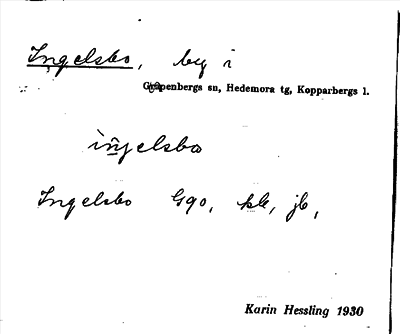 Ingelsbo, by i
Garpenbergs sn, Hedemora tg, Kopparbergs l.
ìŋ̃jelsbo
Ingelsbo Ggo, kb, jb,
Karin Hessling 1930